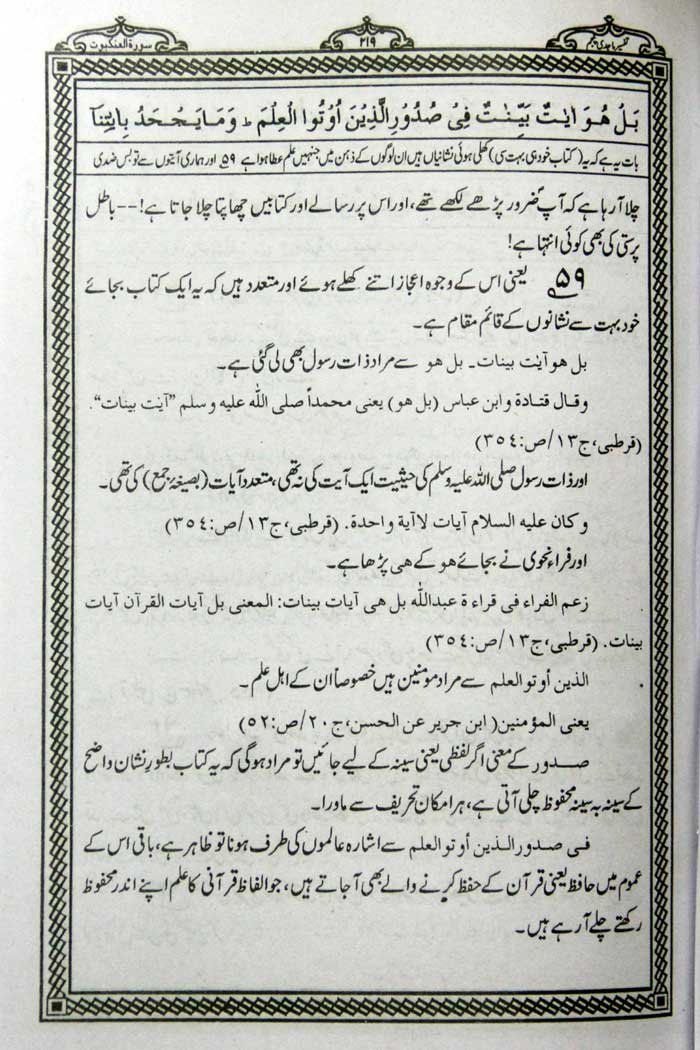 تفسیر ماجدی پنجم
۲۱۹
سورة العنکبوت
بَلْ هُوَ اٰيٰتٌ بَيِّنٰتٌ فِىْ صُدُوْرِ الَّذِيْنَ اُوْتُوا الْعِلْمَ ؕ وَمَا يَجْحَدُ بِاٰيٰتِنَاۤ
بات یہ ہے کہ یہ (کتاب خود ہی بہت سی) کھلی ہوئی نشانیاں ہیں ان لوگوں کے ذہن میں جنہیں علم عطا ہوا ہے ۵۹ اور ہماری آیتوں سے تو بس ضدی
چلا آرہا ہے کہ آپؐ ضرور پڑھے لکھے تھے، اور اس پر رسالے اور کتابیں چھاپتا چلا جاتا ہے!--باطل
پرستی کی بھی کوئی انتہا ہے!
۵۹ یعنی اس کے وجوہ اعجاز اتنے کھلے ہوئے اور متعدد ہیں کہ یہ ایک کتاب بجائے
خود بہت سے نشانوں کے قائم مقام ہے۔
بل هو آیٰت بینات۔ بل هو سے مراد ذات رسول بھی لی گئی ہے۔
وقال قتادة وابن عباس (بل هو) یعنی محمداً صلی الله علیه وسلم "آیٰت بینات".
(قرطبی، ج۱۳/ص:۳۵٤)
اور ذات رسول صلی اللہ علیہ وسلم کی حیثیت ایک آیت کی نہ تھی، متعدد آیات (بصیغۂ جمع) کی تھی۔
وکان علیه السلام آیات لاآیة واحدة. (قرطبی، ج۱۳/ص:۳۵٤)
اور فراء نحوی نے بجائے هو کے هی پڑھا ہے۔
زعم الفراء فی قراءة عبدالله بل هی آیات بینات: المعنی بل آیات القرآن آیات
بینات. (قرطبی، ج۱۳/ص:۳۵٤)
الذین أوتو العلم سے مراد مومنین ہیں خصوصاً ان کے اہل علم۔
یعنی المؤمنین( ابن جریر عن الحسن، ج۲۰/ص:۵۲)
صدور کے معنی اگر لفظی یعنی سینہ کے لیے جائیں تو مراد ہوگی کہ یہ کتاب بطور نشان واضح
کے سینہ بہ سینہ محفوظ چلی آتی ہے، ہر امکان تحریف سے ماورا۔
فی صدور الذین أوتو العلم سے اشارہ عالموں کی طرف ہونا تو ظاہر ہے، باقی اس کے
عموم میں حافظ یعنی قرآن کے حفظ کرنے والے بھی آجاتے ہیں، جو الفاظ قرآنی کا علم اپنے اندر محفوظ
رکھتے چلے آرہے ہیں۔